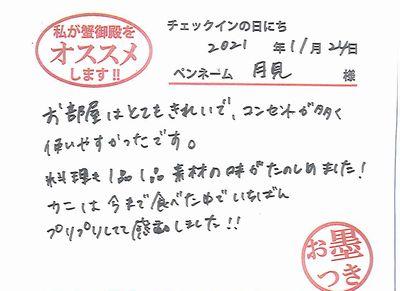 私が蟹御殿を
オススメ
します!!
チェックインの日にち
2021年11月24日
ペンネーム 月見 様
お部屋はとてもきれいで、コンセントが多く
使いやすかったです。
料理も1品1品素材の味がたのしめました!
カニは今まで食べた中でいちばん
プリプリしてて感動しました!!
お墨
つき